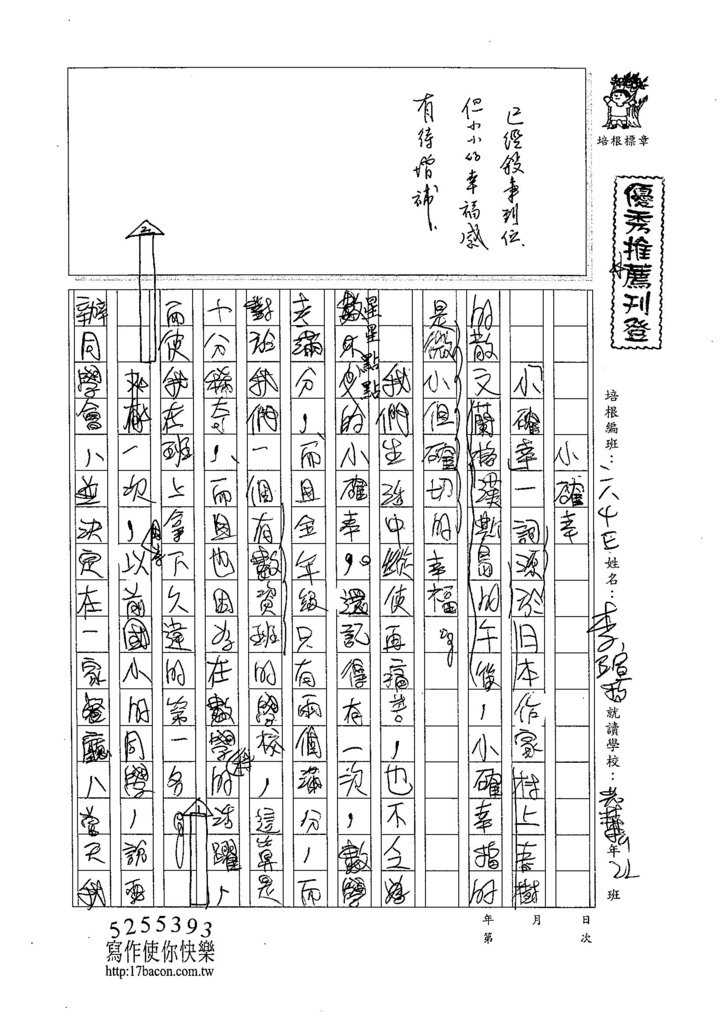 培根標章
優秀推薦刊登
已經敘事到位
但小小的幸福感
有待增補
培根編班：
姓名：李
就讀學校：
年
22
班
日 月 年
次 第
小確幸
小確幸一詞源於日本作家村上春樹
的散文蘭格漢斯島的午後，小確幸指的
是微小但確切的幸福。
我們生活中縱使再痛苦，也不全
星星點點的小確幸。還記得有一次，數學
考滿分，而且全年級只有兩個滿分，而
對於我們一個有數資班的學校，這算是
十分稀奇，而且也因為在數學科的活躍，
而使我在班上拿下久違的第一名。
有一次，以前國小的同學，說要
辦同學會，並決定在一家餐廳，當天我
5255393
寫作使你快樂
http:17bacon.com.tw